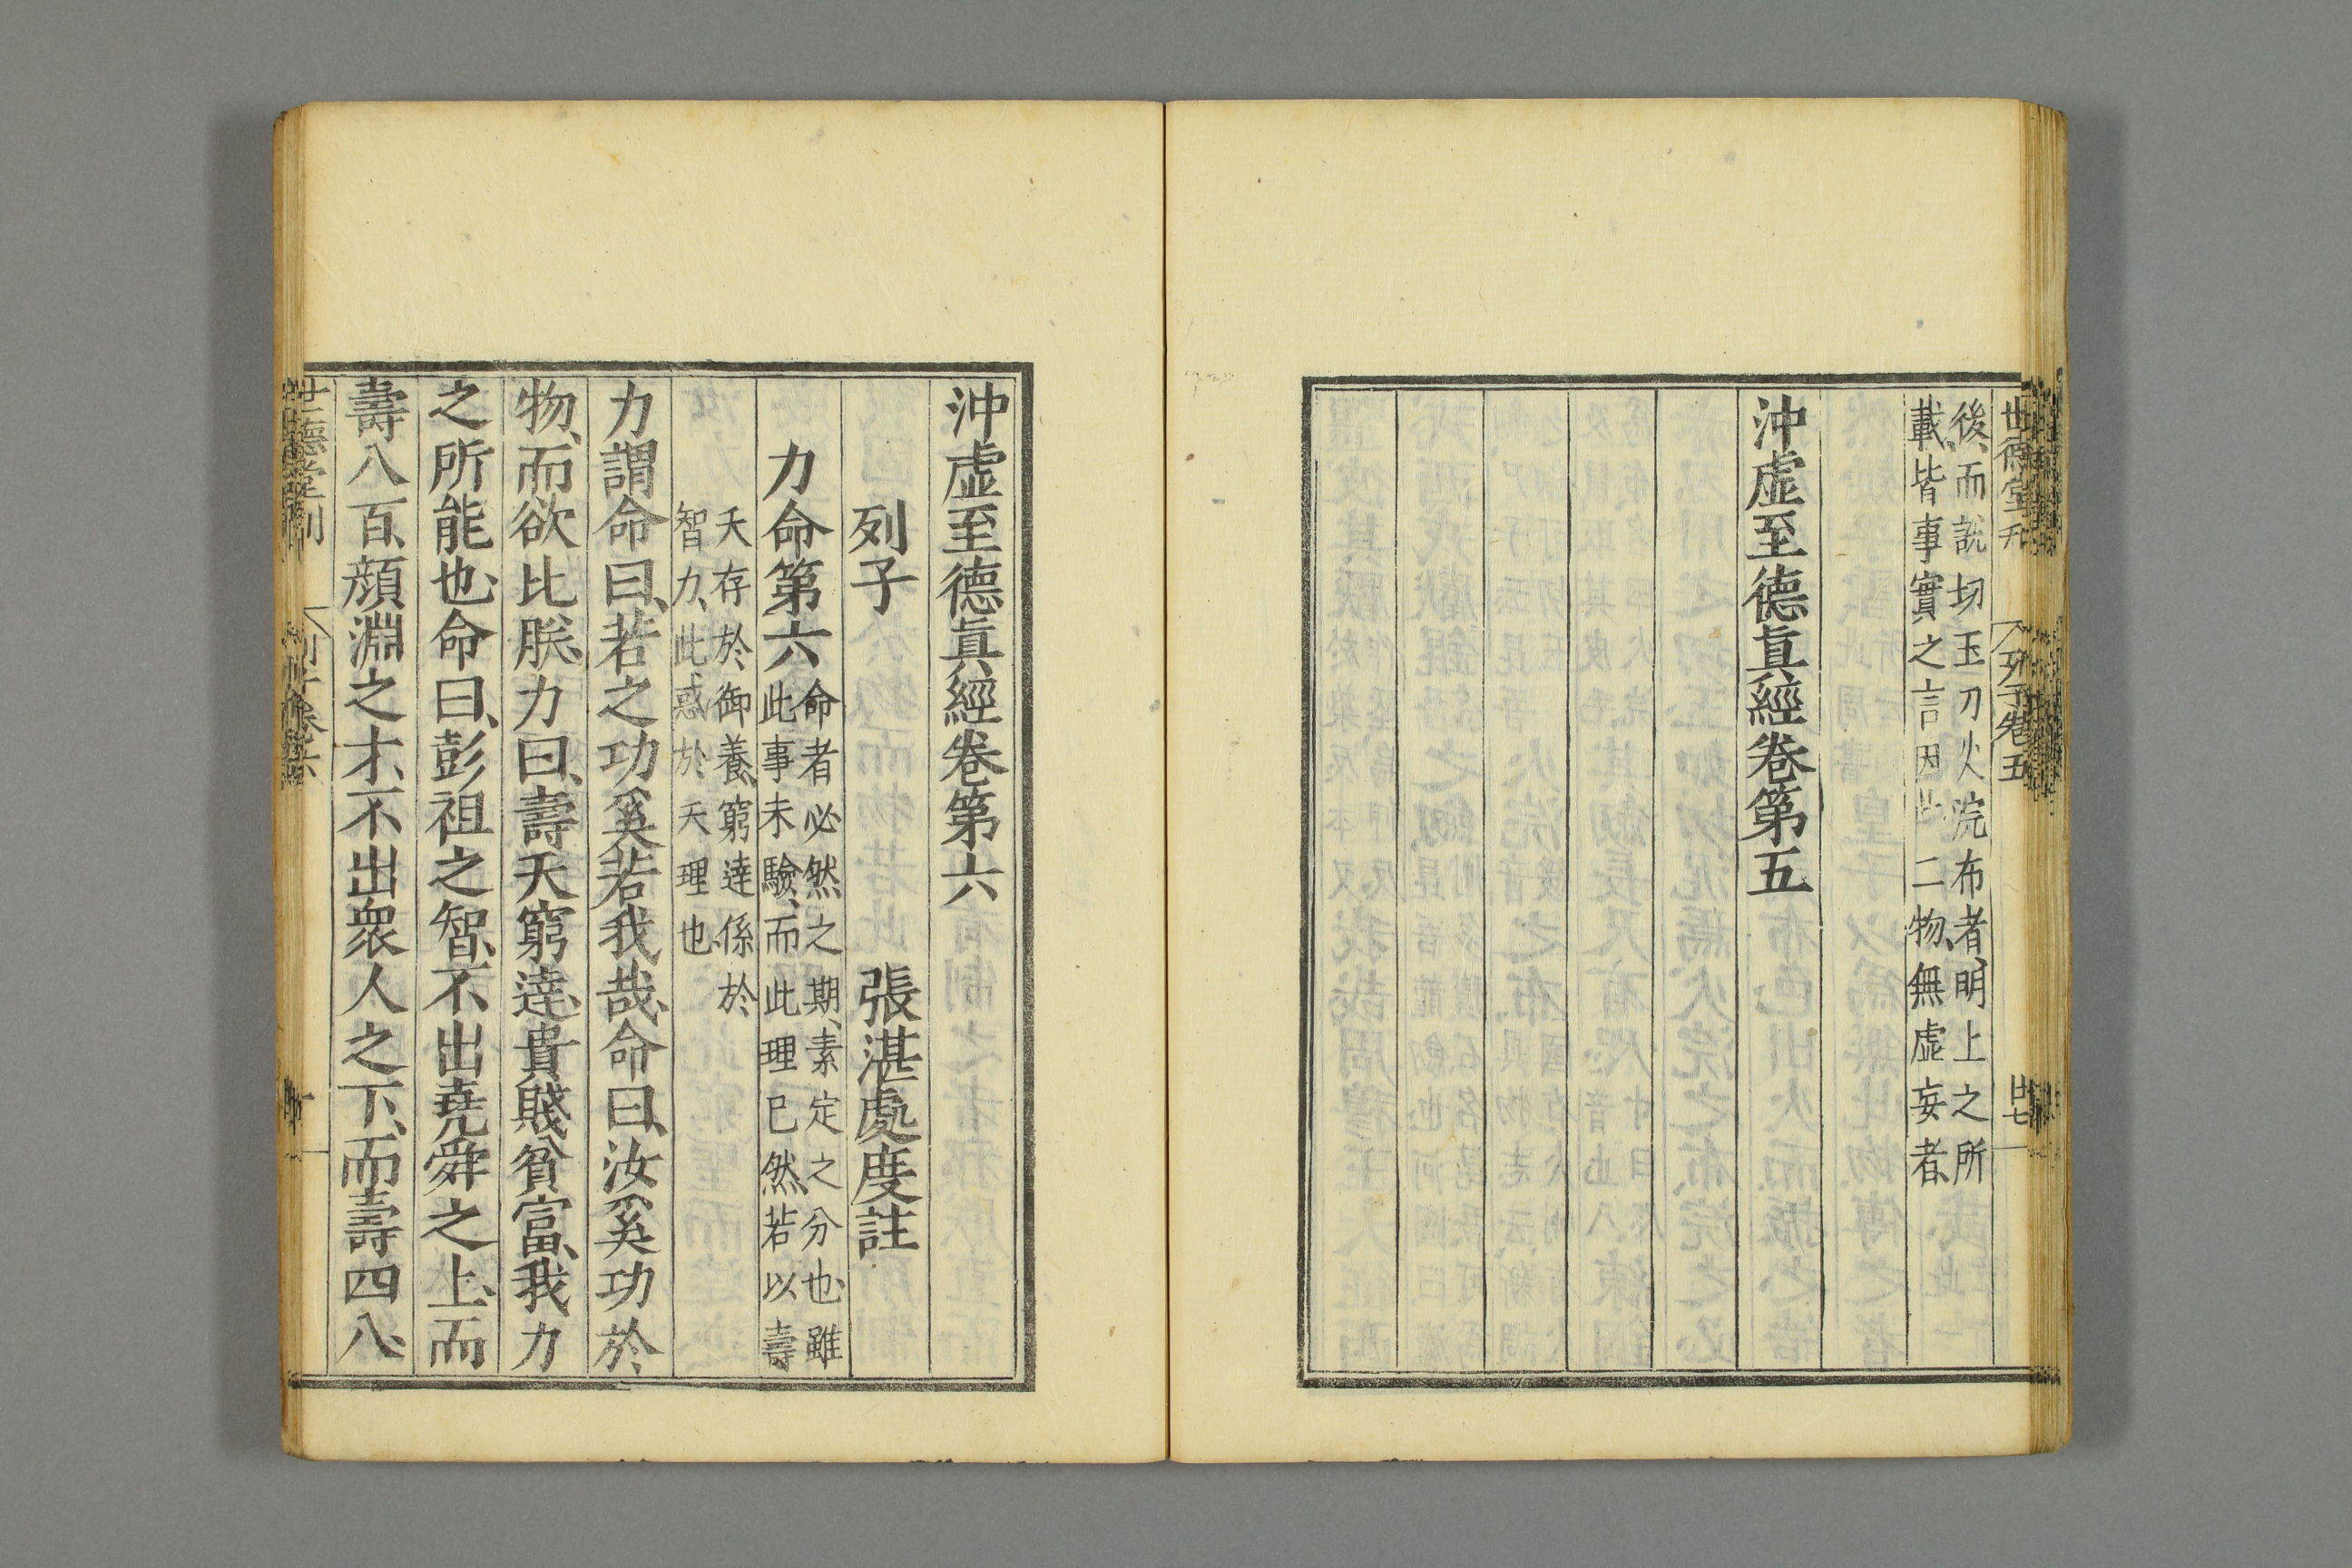 世德堂刊
列子卷五
廿七
後、而説切玉刀火浣布者、明上之所
載、皆事實之言、因此二物、無虛妄者、
沖虛至德眞經卷第五
沖虛至德眞經卷第六
列子 張湛處度註
力命第六
命者必然之期、素定之分也、雖
此事未驗、而此理已然、若以壽
夭存於御養、窮達係於
智力、此惑於天理也、
力謂命曰、若之功奚若我哉、命曰、汝奚功於
物、而欲比朕、力曰、壽夭窮達、貴賤貧富、我力
之所能也、命曰、彭祖之智、不出堯舜之上、而
壽八百、顔淵之才、不出衆人之下、而壽四八、
世德堂刊